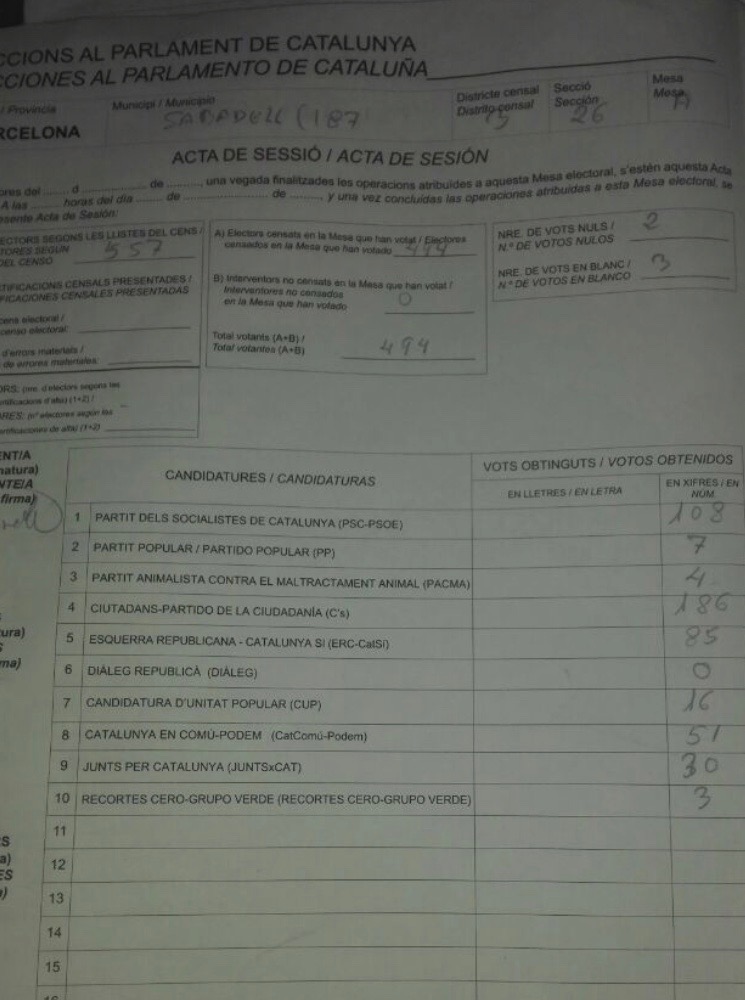 CCIONS AL PARLAMENT DE CATALUNYA
CCIONES AL PARLAMENTO DE CATALUÑA
/ Provincia
RCELONA
Municipi / Municipio
SABADELL (187
Districte censal
Distrito censal
Secció
Sección
26
Mesa
Mesa
A
ACTA DE SESSIÓ / ACTA DE SESIÓN
ores del ...... d .................. de ........, una vegada finalitzades les operacions atribuïdes a aquesta Mesa electoral, s'estén aquesta Acta
A las ...... horas del día ...... de .................. de ........, y una vez concluidas las operaciones atribuidas a esta Mesa electoral, se
esente Acta de Sesión:
ECTORS SEGONS LES LLISTES DEL CENS /
TORES SEGÚN
DEL CENSO
557
TIFICACIONS CENSALS PRESENTADES /
FICACIONES CENSALES PRESENTADAS
cens electoral /
censo electoral:
d'errors materials /
de errores materiales:
ORS: (nre. d'electors segons les
certificacions d'alta) (1+2) /
RES: (nº electores según las
certificaciones de alta) (1+2)
A) Electors censats en la Mesa que han votat / Electores
censados en la Mesa que han votado 494
B) Interventors no censats en la Mesa que han votat /
Interventores no censados
en la Mesa que han votado
0
Total votants (A+B) /
Total votantes (A+B)
494
NRE. DE VOTS NULS /
N.º DE VOTOS NULOS
2
NRE. DE VOTS EN BLANC /
N.º DE VOTOS EN BLANCO
3
ENT/A
natura)
NTE/A
firma)
CANDIDATURES / CANDIDATURAS
VOTS OBTINGUTS / VOTOS OBTENIDOS
EN LLETRES / EN LETRA
EN XIFRES / EN NÚM
1 PARTIT DELS SOCIALISTES DE CATALUNYA (PSC-PSOE) 108
2 PARTIT POPULAR / PARTIDO POPULAR (PP) 7
3 PARTIT ANIMALISTA CONTRA EL MALTRACTAMENT ANIMAL (PACMA) 4
4 CIUTADANS-PARTIDO DE LA CIUDADANÍA (C's) 186
5 ESQUERRA REPUBLICANA - CATALUNYA SÍ (ERC-CatSí) 85
6 DIÀLEG REPUBLICÀ (DIÀLEG) 0
7 CANDIDATURA D'UNITAT POPULAR (CUP) 16
8 CATALUNYA EN COMÚ-PODEM (CatComú-Podem) 51
9 JUNTS PER CATALUNYA (JUNTSxCAT) 30
10 RECORTES CERO-GRUPO VERDE (RECORTES CERO-GRUPO VERDE) 3
11
12
13
14
15
16